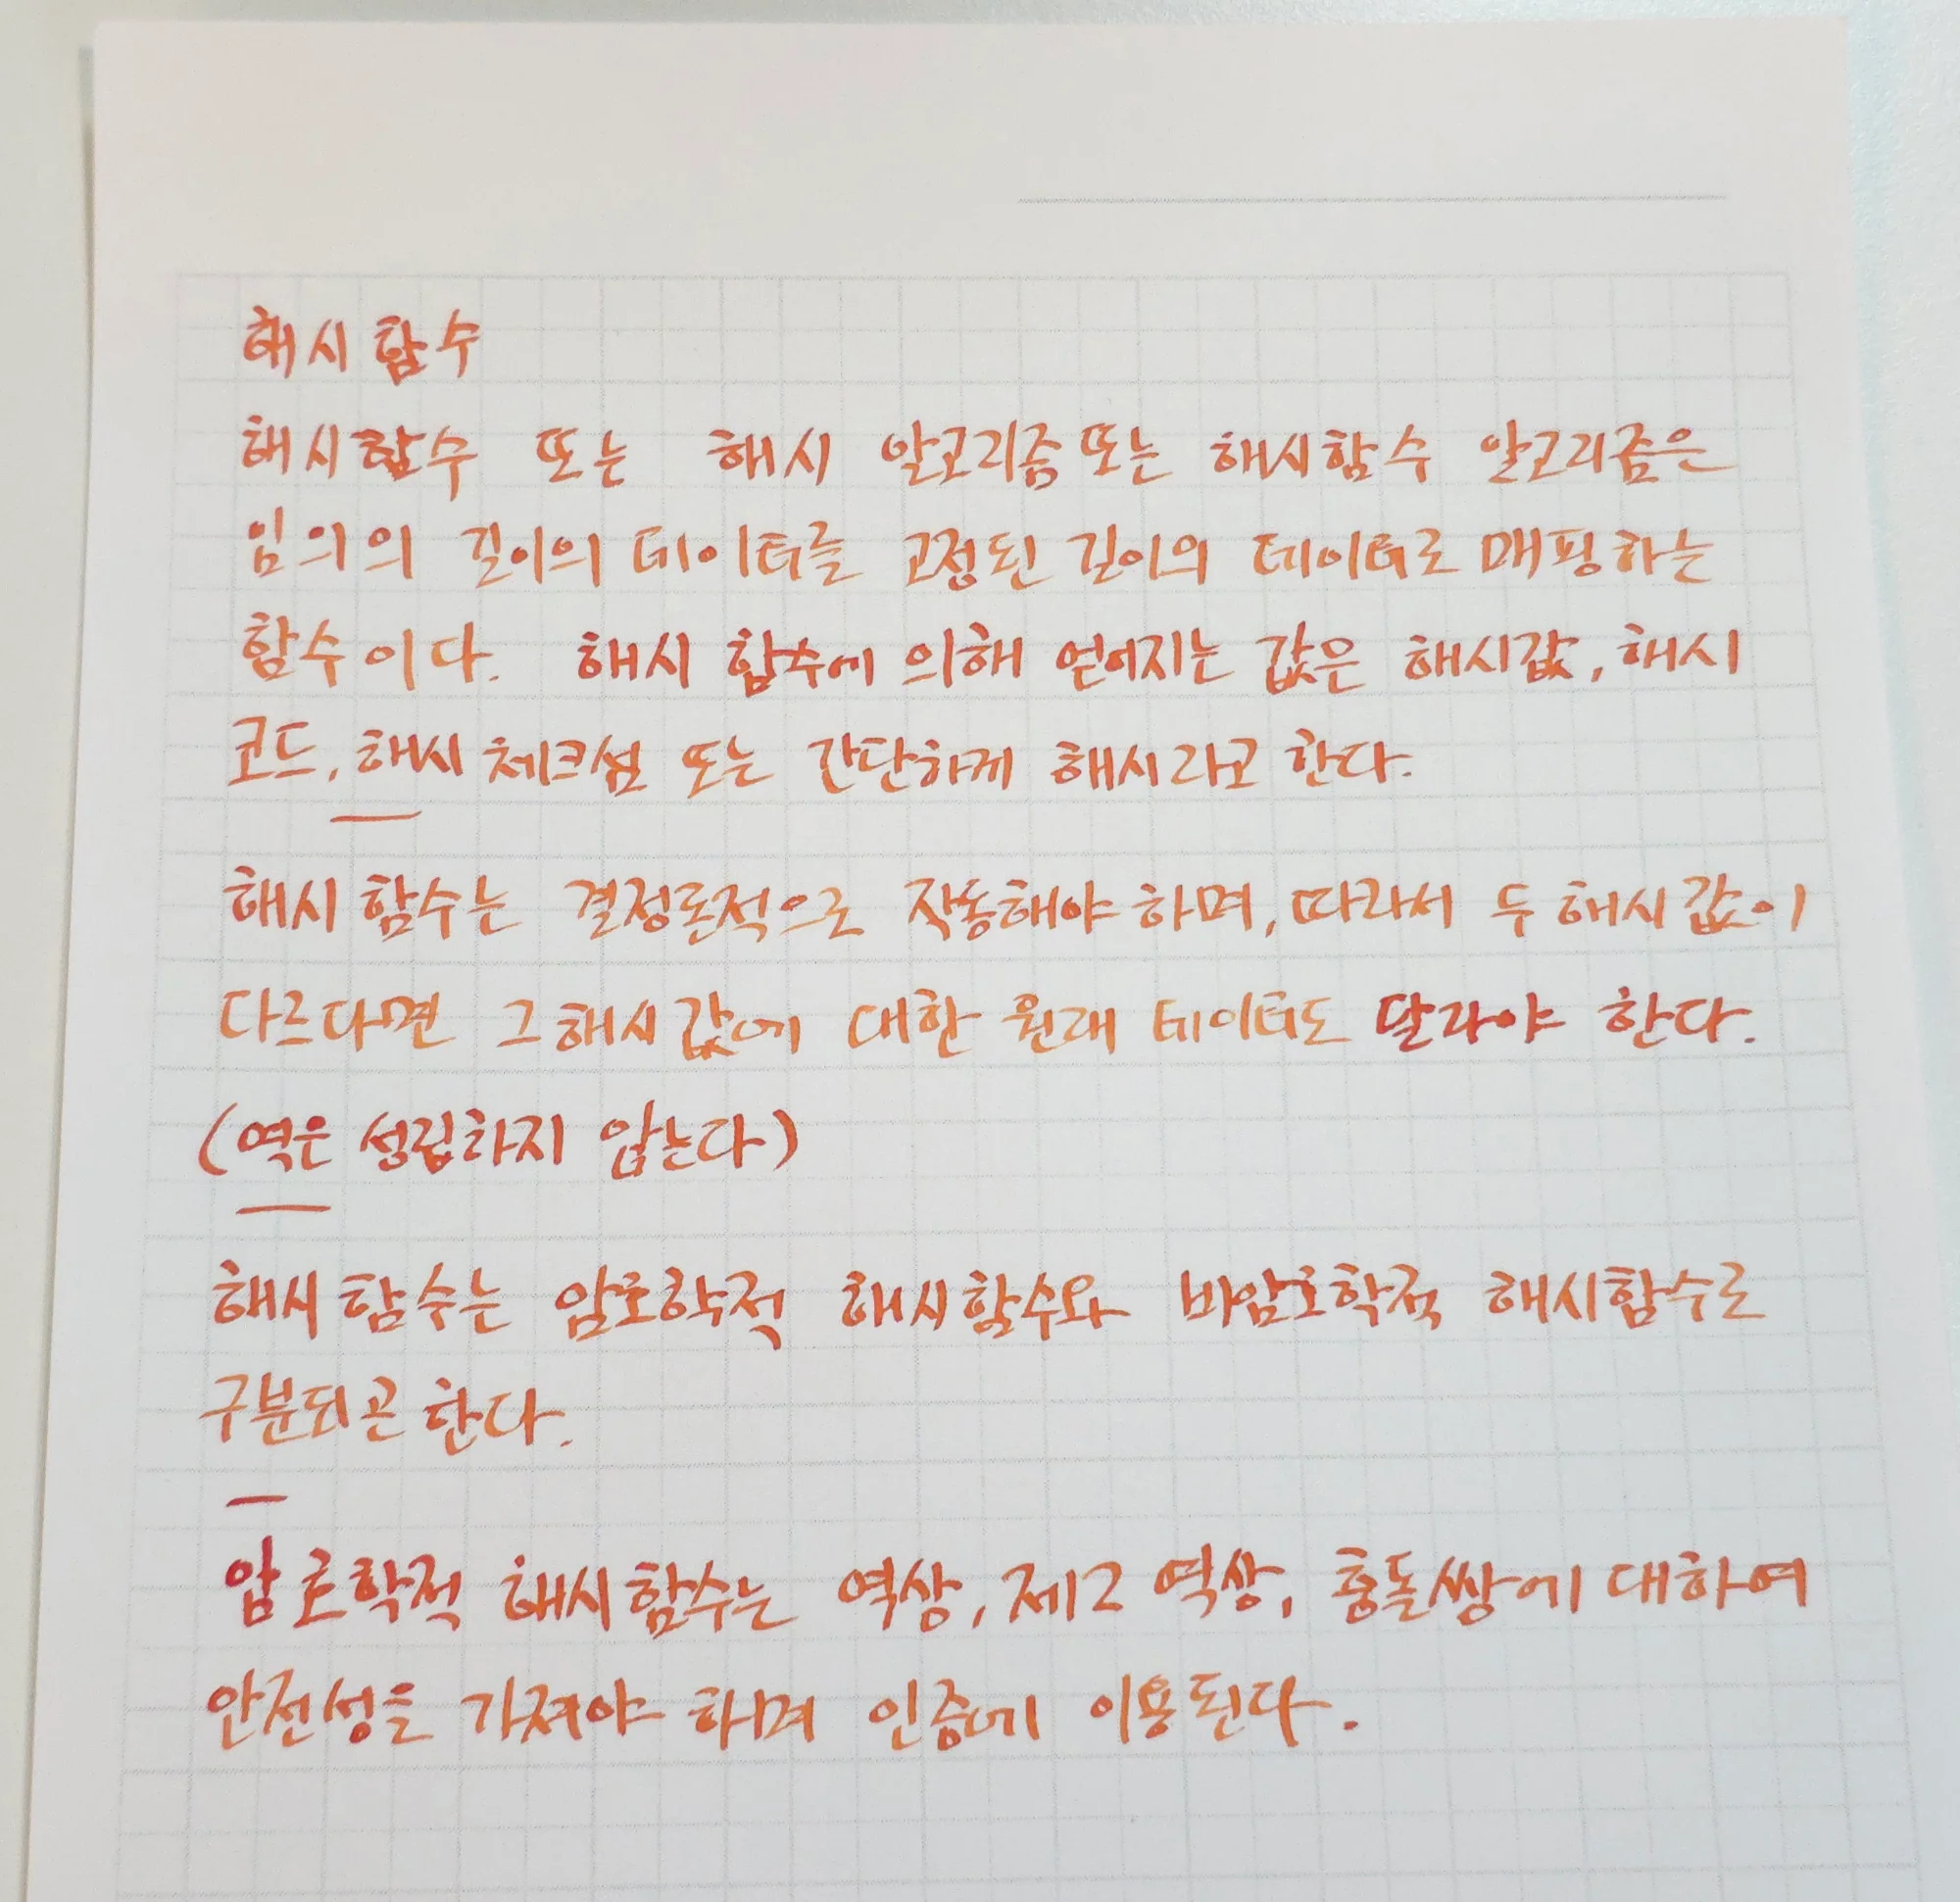 해시 함수
해시함수 또는 해시 알고리즘 또는 해시함수 알고리즘은
임의의 길이의 데이터를 고정된 길이의 데이터로 매핑하는
함수이다. 해시 함수에 의해 얻어지는 값은 해시값, 해시
코드, 해시 체크섬 또는 간단하게 해시라고 한다.
해시 함수는 결정론적으로 작동해야 하며, 따라서 두 해시값이
다르다면 그 해시값에 대한 원래 데이터도 달라야 한다.
(역은 성립하지 않는다)
해시 함수는 암호학적 해시함수와 비암호학적 해시함수로
구분되곤 한다.
암호학적 해시함수는 역상, 제2 역상, 충돌쌍에 대하여
안전성을 가져야 하며 인증에 이용된다.